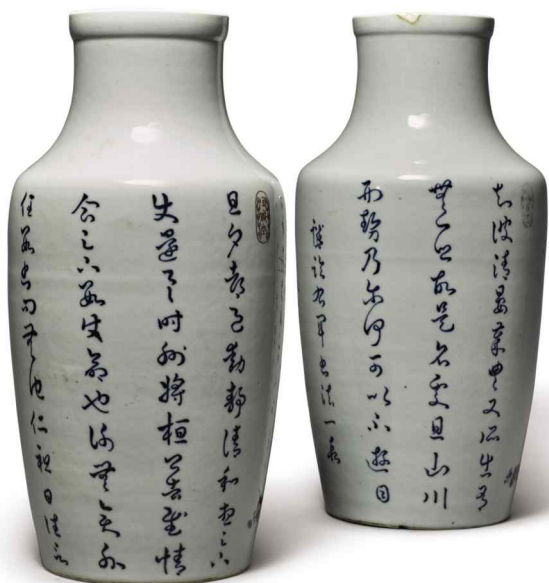 旦夕都邑動靜清和想足下
使還一一時州將桓公告慰情
企足下數使命也謝無奕外
任數書問無他仁祖日往言
知彼清晏歲豐又所出有
無一鄉故是名處且山川
形勢乃爾何可以不遊目
右軍書法一